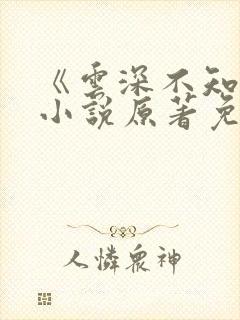 《雲深不知
小說原著免
人憐眾神